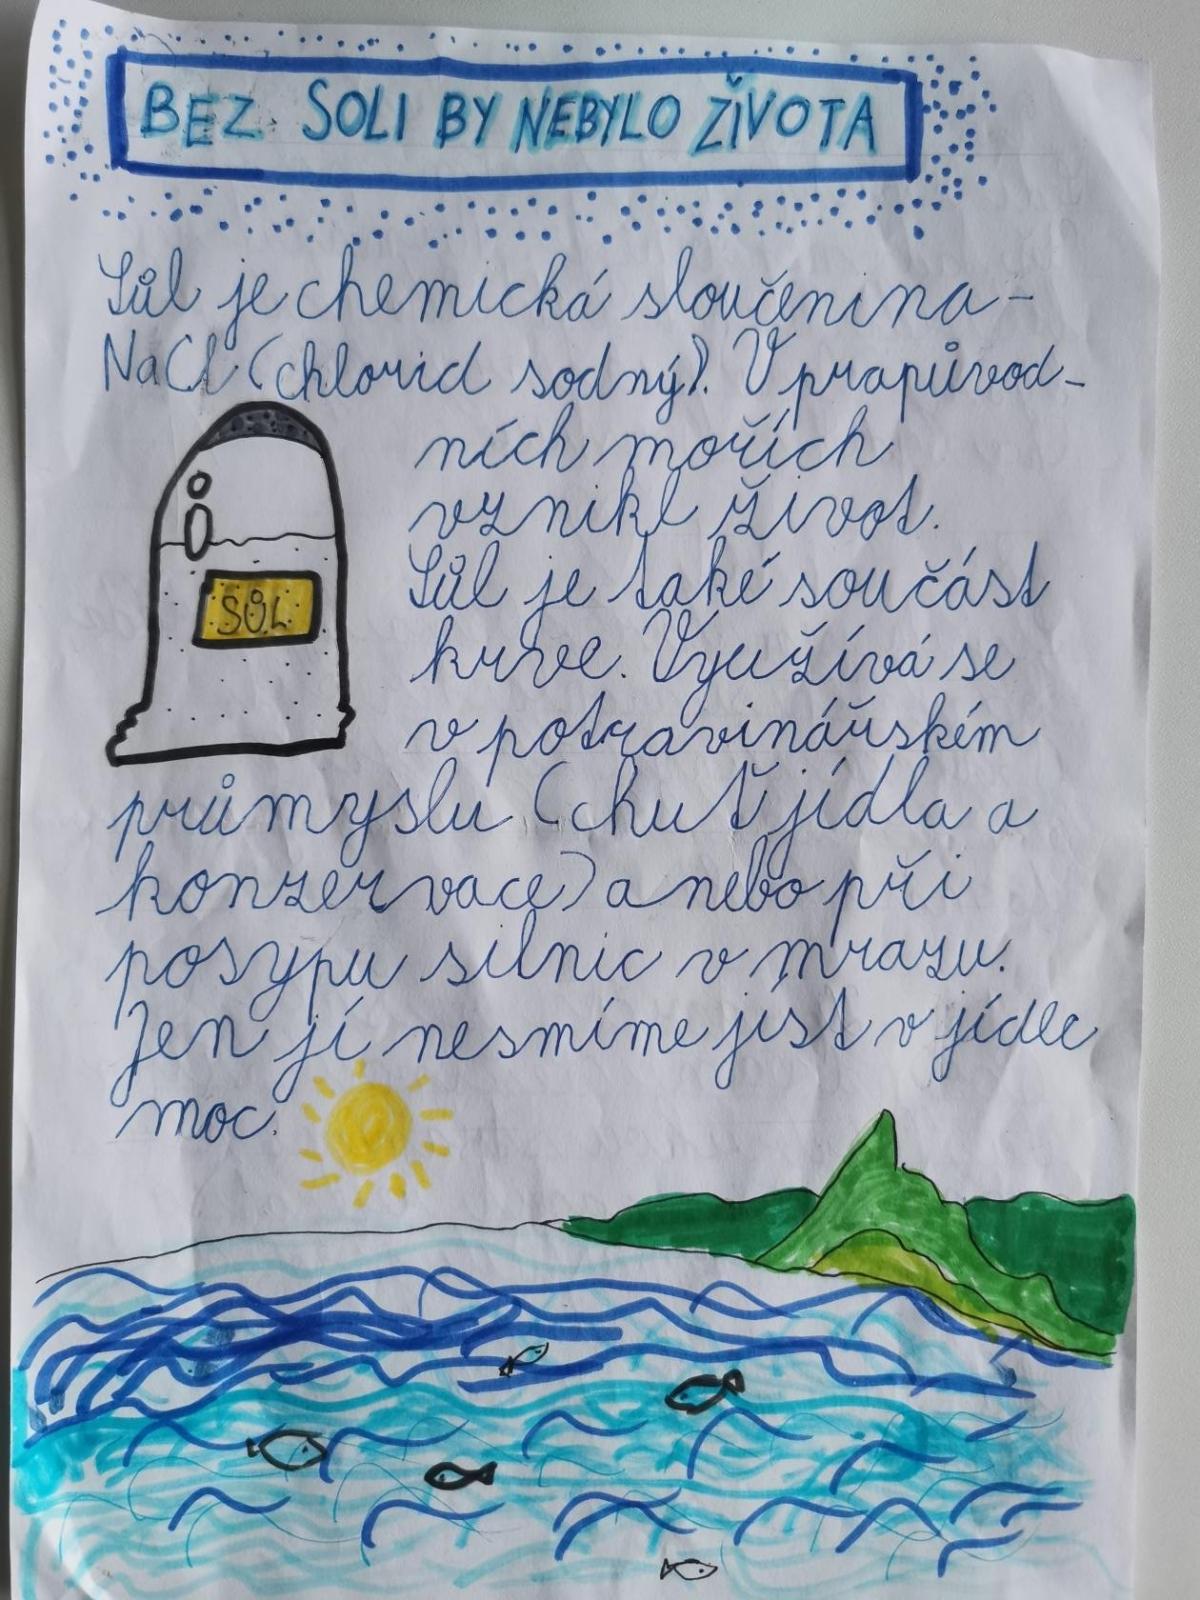 BEZ SOLI BY NEBYLO ŽIVOTA
Sůl je chemická sloučenina -
NaCl (chlorid sodný). V prapůvod-
ních mořích
vznikl život.
Sůl je také součást
krve. Využívá se
v potravinářském
SŮL
průmyslu (chuť jídla a
konzervace) a nebo při
posypu silnic v mrazu.
Jen jí nesmíme jíst v jídle
moc.